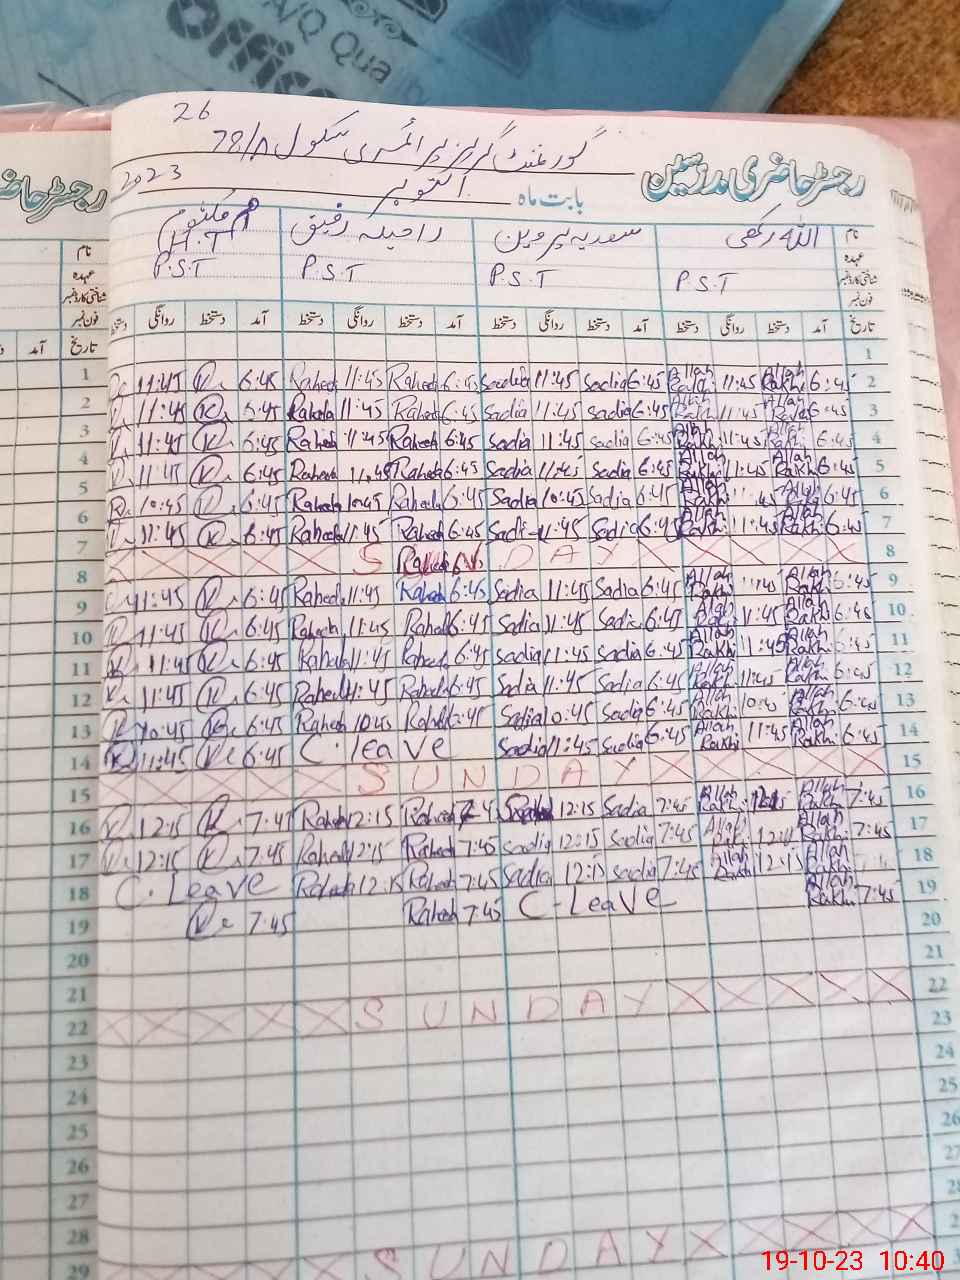 Office
26
گورنمنٹ گرلز پرائمری سکول 78/A
رجسٹر حاضری مدرسین
بابت ماہ اکتوبر 2023
نام اللہ رکھی سعدیہ پروین راحیلہ رفیق ام کلثوم
عہدہ P.S.T P.S.T P.S.T H.T P.S.T
شناختی کارڈ نمبر
فون نمبر
تاریخ آمد دستخط روانگی دستخط آمد دستخط روانگی دستخط آمد دستخط روانگی دستخط آمد دستخط روانگی دستخط
1
11:45 6:45 Raheel 11:45 Raheel 6:45 Sadia 11:45 Sadia 6:45 Allah Rakhi 11:45 Allah Rakhi 6:45 2
11:45 6:45 Raheela 11:45 Raheel 6:45 Sadia 11:45 Sadia 6:45 Allah Rakhi 11:45 Allah 6:45 3
11:45 6:45 Raheela 11:45 Raheela 6:45 Sadia 11:45 Sadia 6:45 Allah Rakhi 11:45 Allah Rakhi 6:45 4
11:45 6:45 Raheela 11:45 Raheela 6:45 Sadia 11:45 Sadia 6:45 Allah Rakhi 11:45 Allah Rakhi 6:45 5
10:45 6:45 Raheela 10:45 Raheela 6:45 Sadia 10:45 Sadia 6:45 Allah Rakhi Allah Rakhi 6:45 6
11:45 6:45 Raheela 11:45 Raheela 6:45 Sadia 11:45 Sadia 6:45 Allah Rakhi 11:45 Allah Rakhi 6:45 7
SUNDAY 8
11:45 6:45 Raheel 11:45 Raheel 6:45 Sadia 11:45 Sadia 6:45 Allah Rakhi 11:45 Allah Rakhi 6:45 9
11:45 6:45 Raheela 11:45 Raheel 6:45 Sadia 11:45 Sadia 6:45 Allah Rakhi 11:45 Allah Rakhi 6:45 10
11:45 6:45 Raheela 11:45 Raheel 6:45 Sadia 11:45 Sadia 6:45 Allah Rakhi 11:45 Allah Rakhi 6:45 11
11:45 6:45 Raheela 11:45 Raheela 6:45 Sadia 11:45 Sadia 6:45 Allah Rakhi 11:45 Allah Rakhi 6:45 12
10:45 6:45 Raheela 10:45 Raheel 6:45 Sadia 10:45 Sadia 6:45 Allah Rakhi 10:45 Allah Rakhi 6:45 13
11:45 6:45 C. leave Sadia 11:45 Sadia 6:45 Allah Rakhi 11:45 Allah Rakhi 6:45 14
SUNDAY 15
12:15 7:45 Raheela 12:15 Raheela 12:15 Sadia 7:45 Allah Rakhi 12:15 Allah Rakhi 7:45 16
12:15 7:45 Raheela 12:15 Raheel 7:45 Sadia 12:15 Sadia 7:45 Allah Rakhi Allah Rakhi 7:45 17
C. Leave Raheela 12:15 Raheela 7:45 Sadia 12:15 Sadia 7:45 Allah Rakhi 12:15 Allah Rakhi 18
7:45 Raheela 7:45 C. Leave Allah Rakhi 7:45 19
20
21
SUNDAY 22
23
24
25
26
27
28
SUNDAY
نام
عہدہ
شناختی کارڈ نمبر
فون نمبر
تاریخ آمد
1
2
3
4
5
6
7
8
9
10
11
12
13
14
15
16
17
18
19
20
21
22
23
24
25
26
27
28
29
19-10-23 10:40